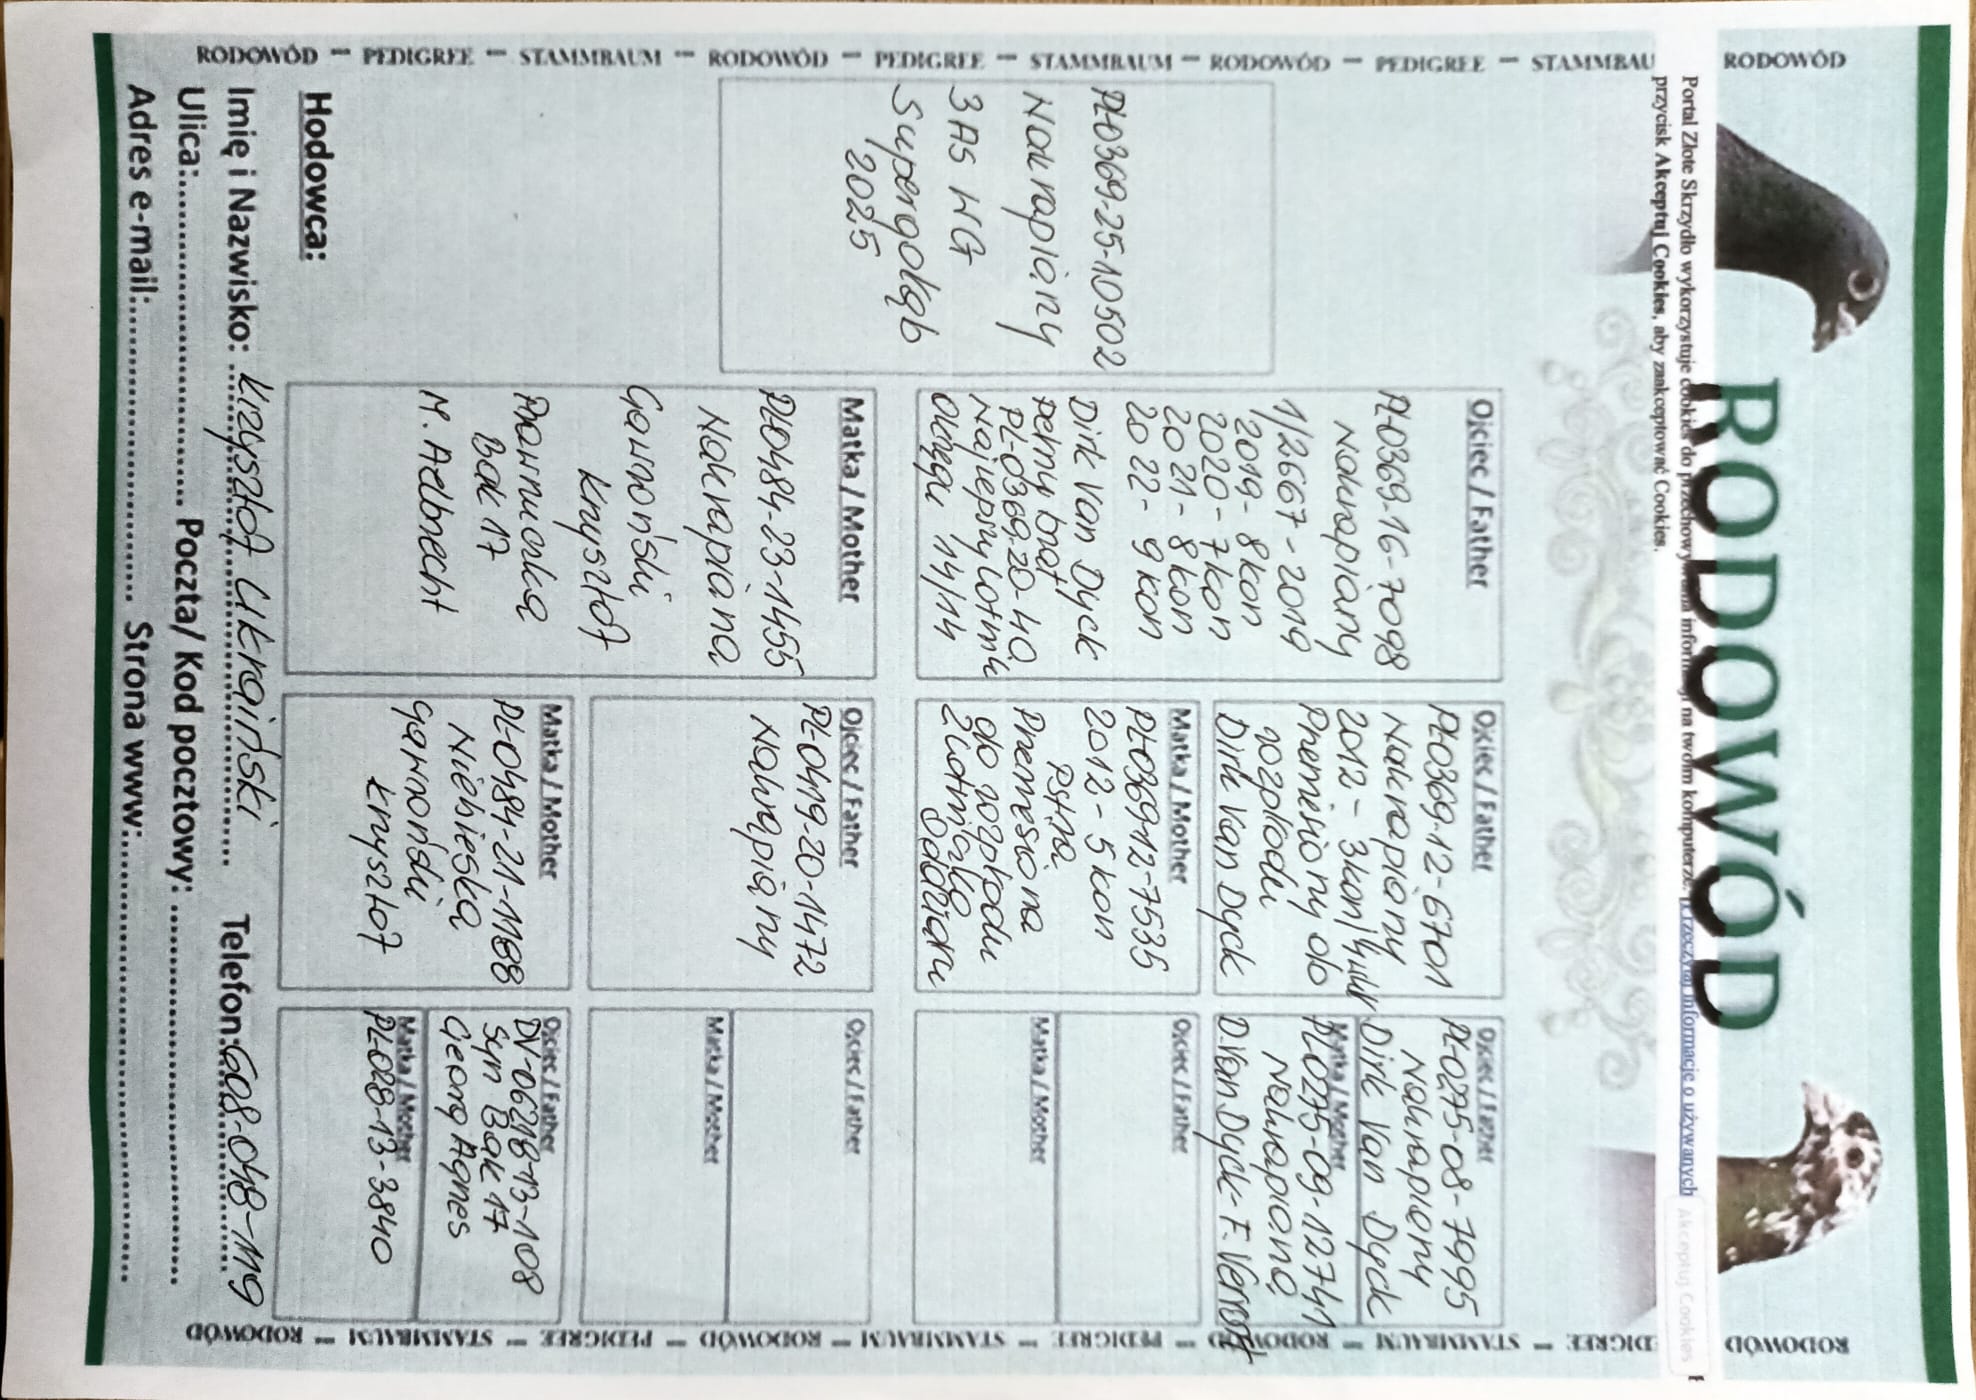 RODOWÓD — PEDIGREE — STAMMBAUM — RODOWÓD — PEDIGREE — STAMMBAUM — RODOWÓD — PEDIGREE — STAMMBAU
RODOWÓD
RODOWÓD
Portal Złote Skrzydło wykorzystuje cookies do przechowywania informacji na twoim komputerze. Przeczytaj informacje o używanych
przycisk Akceptuj Cookies, aby zaakceptować Cookies.
Akceptuj Cookies
PL-0369-25-10502
Nakrapiany
3 AS WG
Supergołąb
2025
Ojciec / Father
PL-0369-16-7098
Nakrapiany
1/2667 - 2019
2019 - 8 kon
2020 - 7 kon
2021 - 8 kon
2022 - 9 kon
Dirk Van Dyck
pełny brat
PL-0369-20-40
Najlepszy lotnik
Okręgu 14/14
Matka / Mother
PL-0484-23-1455
Nakrapiana
Gawroński
Krzysztof
Prawnuczka
Bak 17
M. Aelbrecht
Ojciec / Father
PL-0369-12-6701
Nakrapiany
2012 - 3 kon
Przeniesiony do
rozpłodu
Dirk Van Dyck
Matka / Mother
PL-0369-12-7535
2012 - 5 kon
Pstra
Przeniesiona
do rozpłodu
Z lotnika
Ojciec / Father
PL-0419-20-1472
Nakrapiany
Matka / Mother
PL-0484-21-1188
Niebieska
Gawroński
Krzysztof
Ojciec / Father
PL-0275-08-7995
Nakrapiany
Dirk Van Dyck
Matka / Mother
PL-0275-09-12741
Nakrapiana
D. Van Dyck - F.
Ojciec / Father
Matka / Mother
Ojciec / Father
Matka / Mother
Ojciec / Father
DV-06218-13-108
Syn Bak 17
Georg Agnes
Matka / Mother
PL-028-13-3840
Hodowca:
Imię i Nazwisko: Krzysztof Ukraiński Telefon: 608-048-119
Ulica: Poczta/ Kod pocztowy:
Adres e-mail: Strona www:
RODOWÓD — PEDIGREE — STAMMBAUM — RODOWÓD — PEDIGREE — STAMMBAUM — RODOWÓD — PEDIGREE — STAMMBAUM — RODOWÓD
RODOWÓD